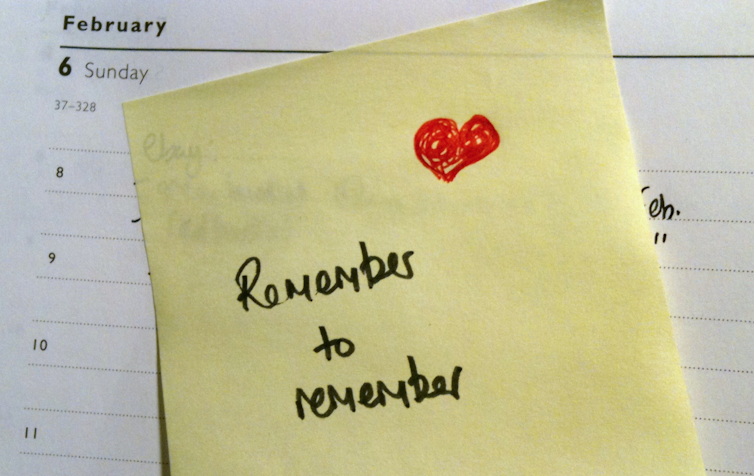 February
6 Sunday
37-328
ebay:
8
eb.
"
9
Remember
10
to
remember
11